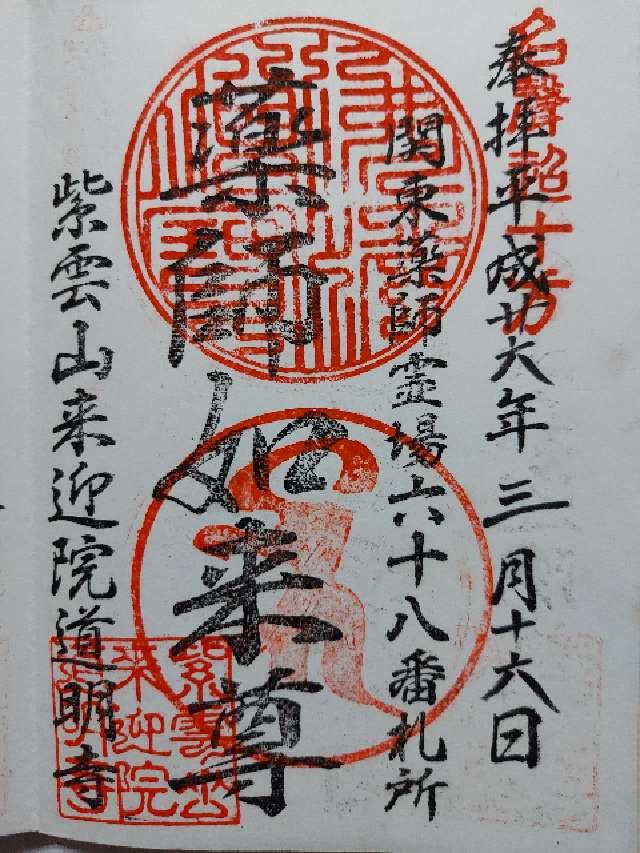 奉拝平成廿六年三月十六日
関東薬師霊場六十八番札所
薬師如来尊
紫雲山来迎院道明寺
紫雲山
来迎院
道明寺